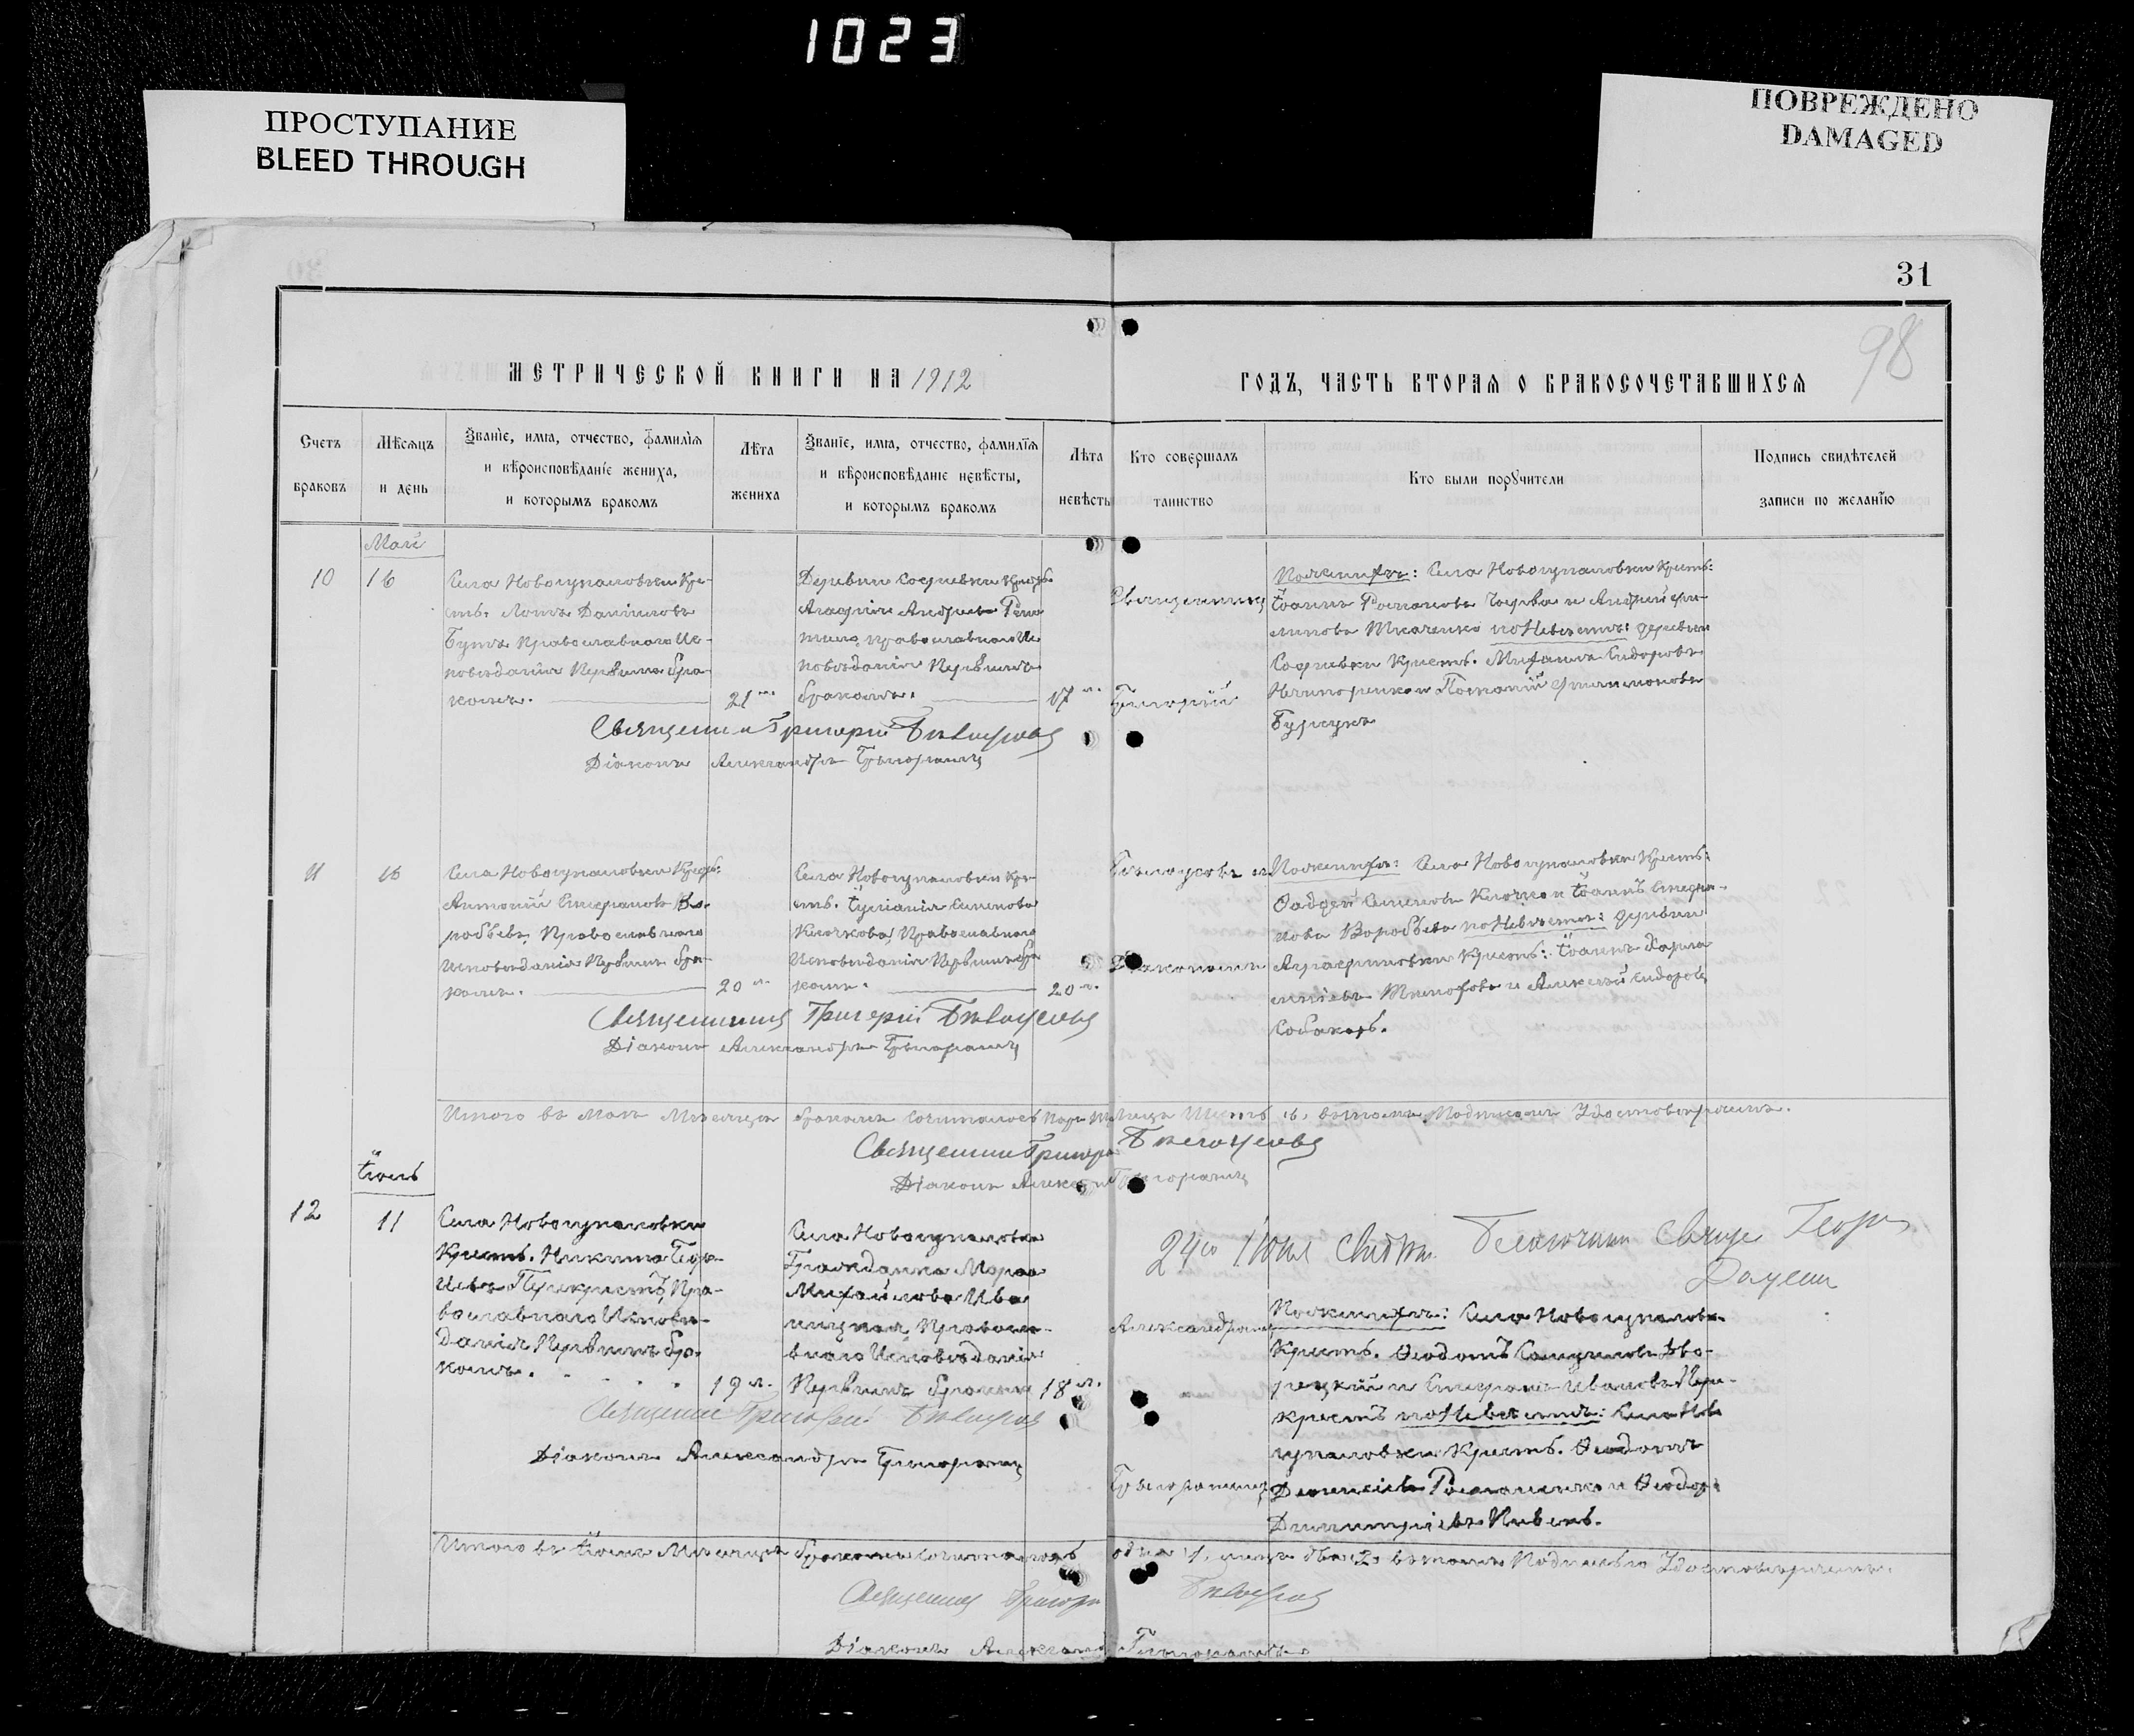 1023
ПРОСТУПАНИЕ
BLEED THROUGH
ПОВРЕЖДЕНО
DAMAGED
31
98
МЕТРИЧЕСКОЙ КНИГИ НА 1912
ГОДЪ, ЧАСТЬ ВТОРАЯ О БРАКОСОЧЕТАВШИХСЯ
Счетъ
браковъ
Мѣсяцъ
и день
Званіе, имя, отчество, фамилія
и вѣроисповѣданіе жениха,
и которымъ бракомъ
Лѣта
жениха
Званіе, имя, отчество, фамилія
и вѣроисповѣданіе невѣсты,
и которымъ бракомъ
Лѣта
невѣсты
Кто совершалъ
таинство
Кто были поручители
Подпись свидѣтелей
записи по желанію
Май
10
16
Села Новогупаловки Кре-
стъ. Даніиловъ
Православнаго Ис-
повѣданія Первымъ бра-
комъ.
21
Деревни Софіевки
Андреева
православнаго Ис
повѣданія Первымъ
бракомъ.
17
Священникъ
Григорій
По женихѣ: Села Новогупаловки Крест:
Іоаннъ Романовъ и Андрей Фи-
липовъ Ткаченко по Невѣстѣ: деревни
Софіевки Крест. Михаилъ Сидоровъ
Филимоновъ
Священникъ Григорій Бѣлоусовъ
Діаконъ Александръ Григоровичъ
11
16
Села Новогупаловки
Антоній Стефановъ Во-
робьевъ, Православнаго
Исповѣданія Первымъ бра-
комъ.
20
Села Новогупаловки Кре-
ст. Іуліанія Семенова
Клочкова, Православнаго
Исповѣданія Первымъ бра
комъ.
20
Бѣлоусовъ и
Діакономъ
По женихѣ: Села Новогупаловки Крест:
Фаддей Семеновъ Клочко и Іоаннъ Стефа-
новъ Воробьевъ по Невѣстѣ: деревни
Крест: Іоаннъ Харла
мпіевъ и Алексѣй Сидоровъ
Собакарь.
Священникъ Григорій Бѣлоусовъ
Діаконъ Александръ Григоровичъ
Итого въ Маѣ Мѣсяцѣ бракомъ Сочиталось
Священникъ Григорій Бѣлоусовъ
Діаконъ Григоровичъ
Іюнь
12
11
Села Новогупаловки
Крест. Никита Геор-
іевъ Перекрестъ, Пра-
вославнаго Исповѣ-
данія Первымъ бра-
комъ.
19 л.
Села Новогупаловки
Гражданка Марѳа
Михайлова Ива
ницкая, Правосла-
внаго Исповѣданія
Первымъ бракомъ
18 л.
24го Іюня
Александромъ
Григоровичемъ
По женихѣ: Села Новогупаловки
Крест. Ѳеодотъ Дво-
рецкій и Стефанъ Ивановъ Пере-
крестъ по Невѣстѣ: Села Ново
гупаловки Крест. Ѳеодотъ
Романенко и Ѳеодоръ
Димитріевъ Кивень.
Священникъ Григорій Бѣлоусовъ
Діаконъ Александръ Григоровичъ
Итого въ Іюнѣ Мѣсяцѣ бракомъ Сочиталось одна 1, лицъ два 2, въ томъ Подписью Удостовѣряемъ.
Священникъ Григорій Бѣлоусовъ
Діаконъ Александръ Григоровичъ